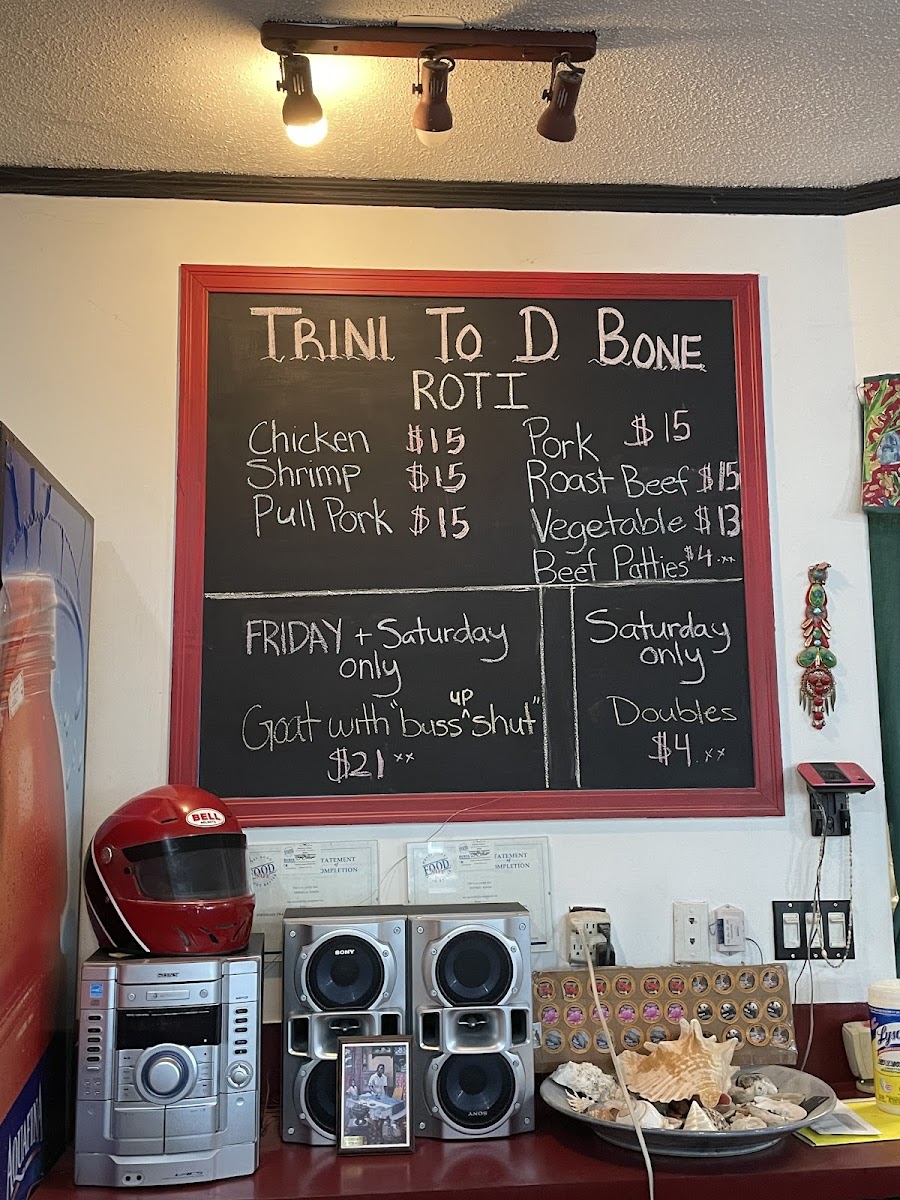 TRINI TO D BONE
ROTI
Chicken $15
Shrimp $15
Pull Pork $15
Pork $15
Roast Beef $15
Vegetable $13
Beef Patties $4.xx
FRIDAY + Saturday
only
Goat with "buss up shut"
$21 xx
Saturday
only
Doubles
$4.xx
BELL
FOOD
STATEMENT
of
COMPLETION
FOOD
STATEMENT
of
COMPLETION
SONY
SONY
SONY
AQUAFINA
Lysol